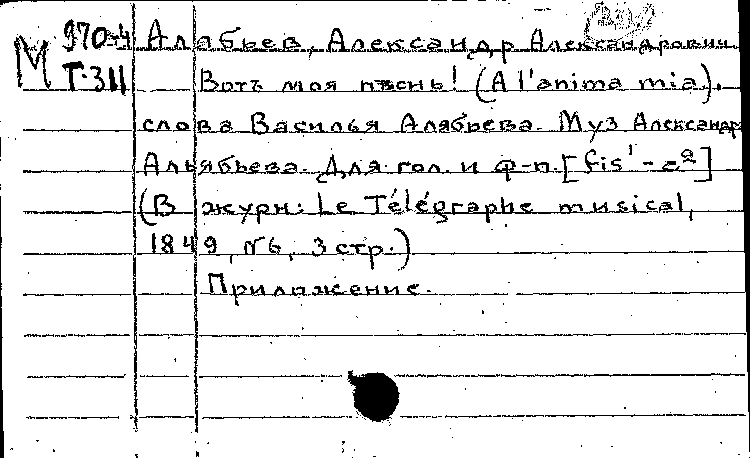 М 970-4 Алябьев, Александр Александрович
Т-311 Вотъ моя пѣснь! (A l'anima mia).
слова Василья Алябьева. Муз Александр
Альябьева. Для гол. и ф-п. [fis¹-a²]
(В журн: Le Télégraphe musical,
1849, №6, 3 стр.)
Приложение.